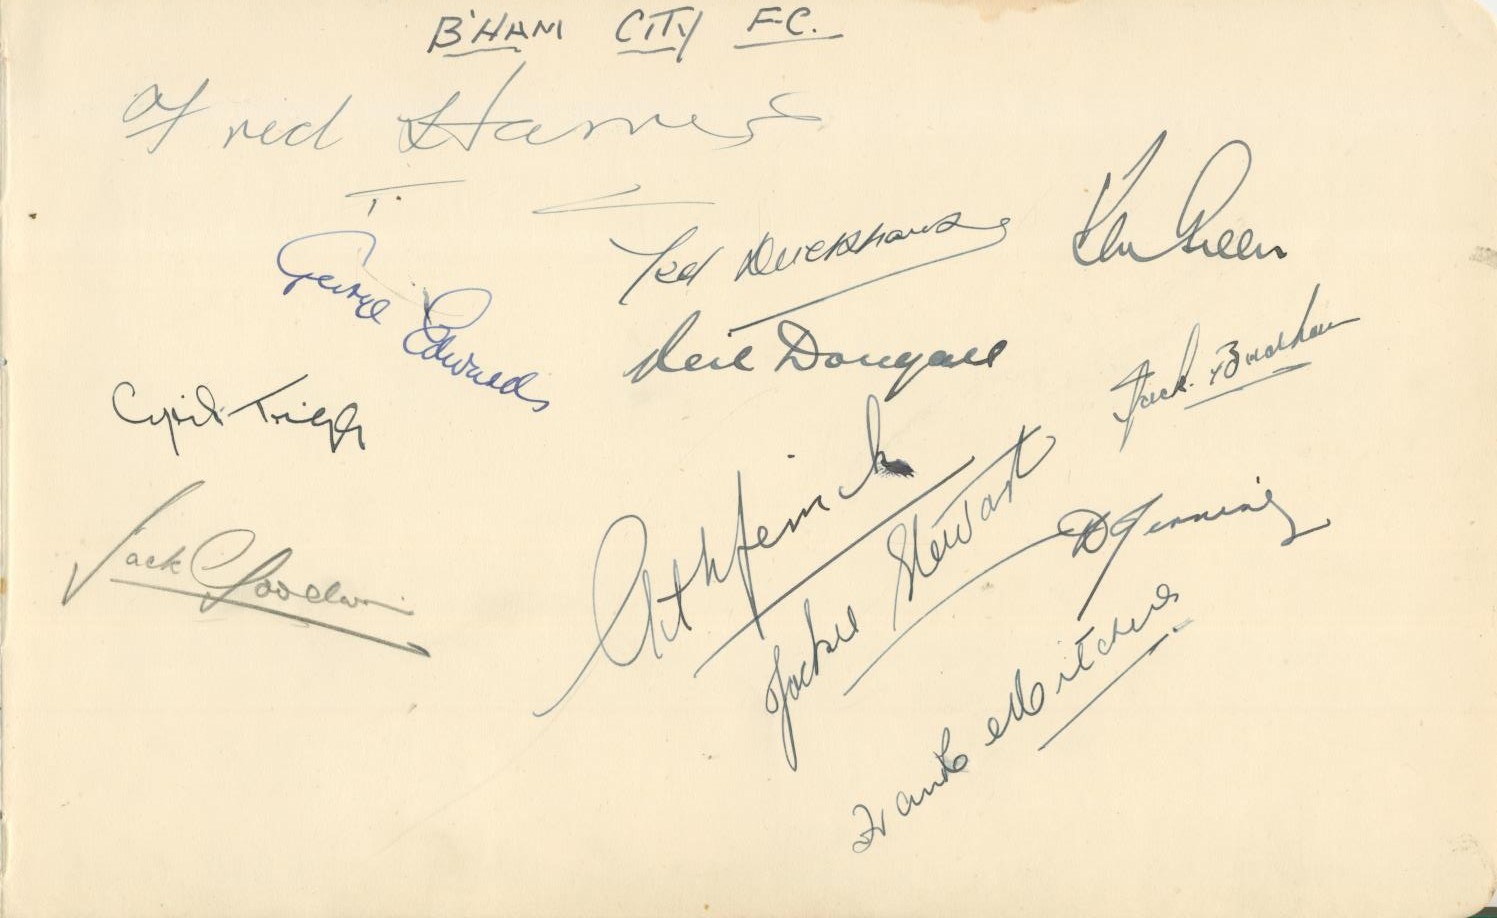 B'HAM CITY F.C.
Fred Harris
George Edwards
Ted Duckhouse
Ken Green
Neil Dougall
Jack Badham
Cyril Trigg
Arthur Turner
Jackie Stewart
D Jennings
Jack Goodwin
Frank Mitchell